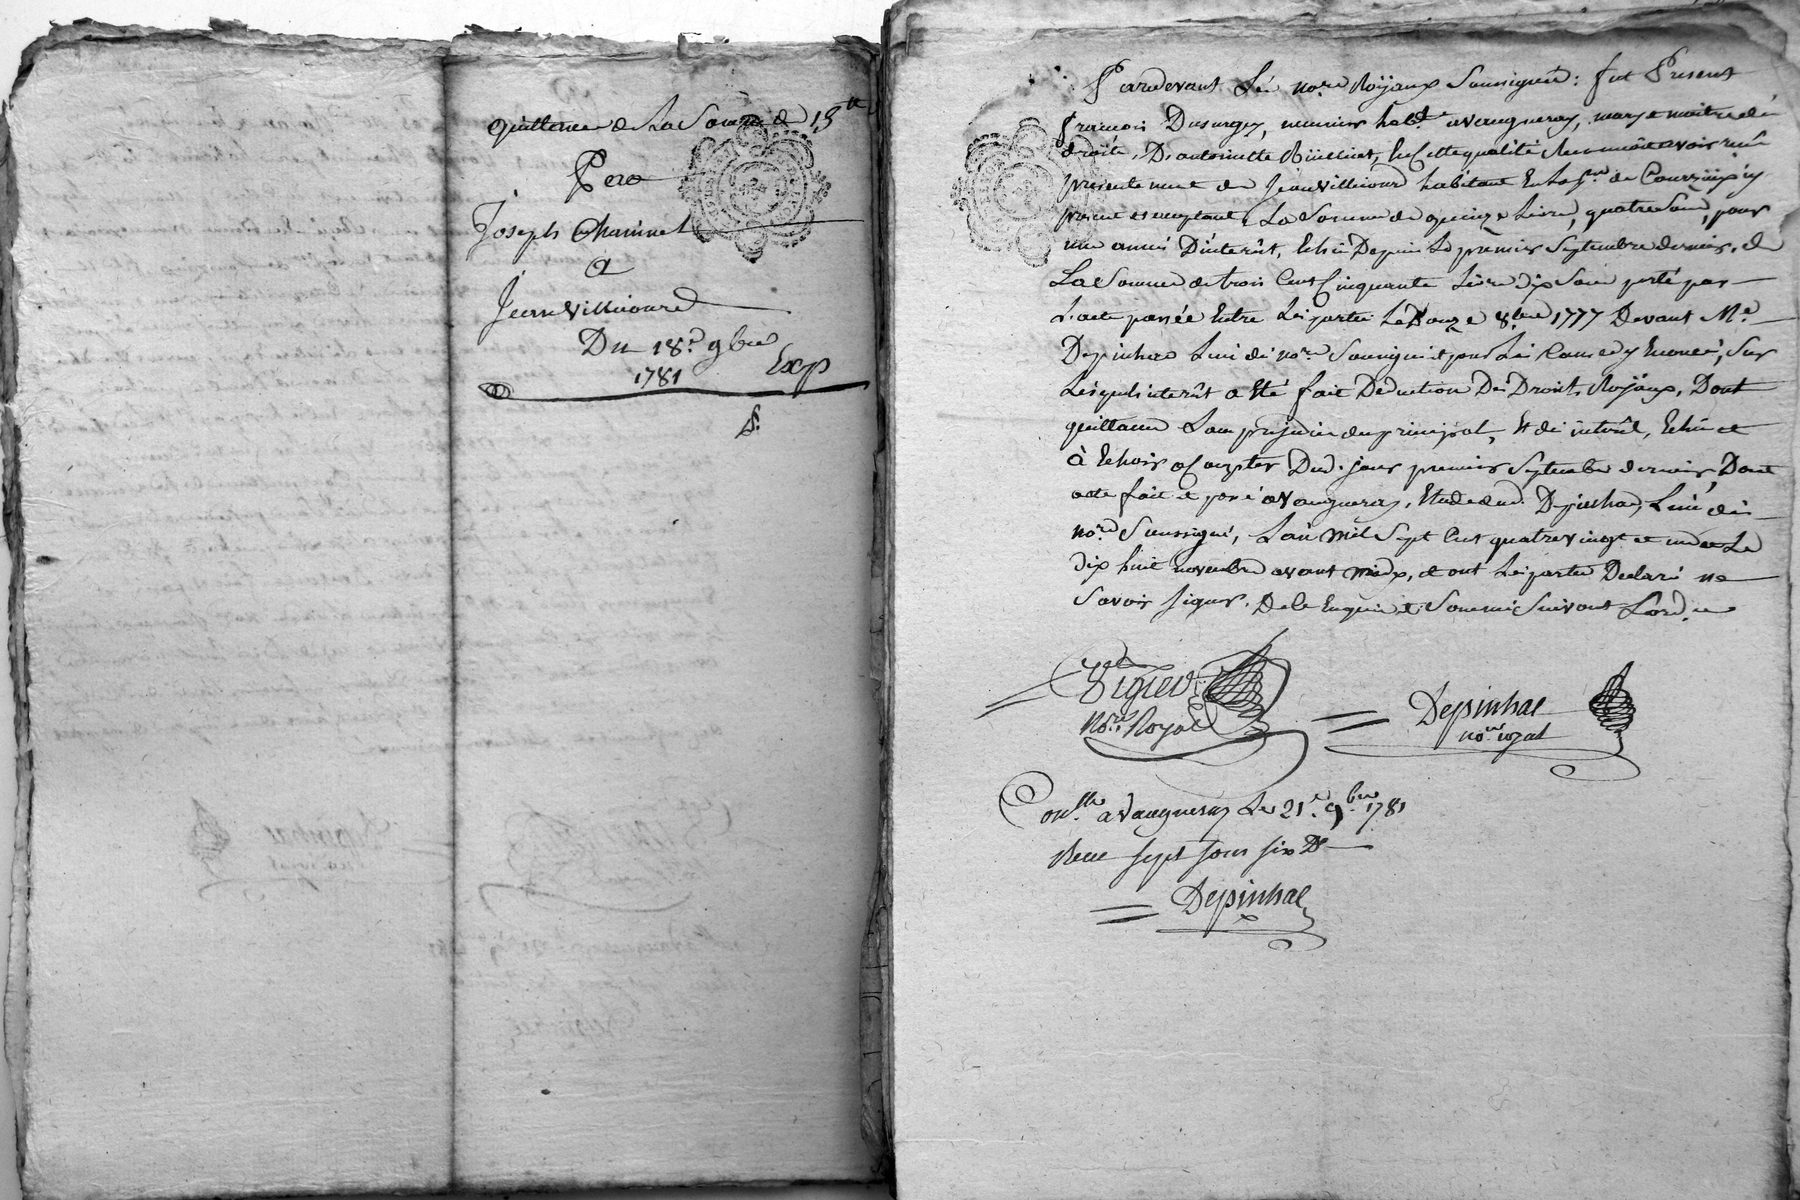 quittence de La Somme de 15 tt
Par
Joseph Charvinet
a
Jean Villicourd
Du 18e. 9bre
1781 Exp
Pardevant Lés nore. Royaux Soussignés : fut Present
francois Dusurgey, habtt. a Vaugneray, mary et maitre dés
droits, D'antoinette en Cette qualité Reconnoit avoir reçu
presentement de Jean Villicourd habitant En La de Courzieux y
present et acceptant, La Somme de quinze Livre, quatre Sous, pour
une année D'interêt, Echüe Depuis Le premier Septembre dernier, de
La Somme de trois Cent Cinquante Livre dix Sous porté par
L'acte passée Entre Les partie Le Douze 8bre 1777 Devant Me.
Depinhac L'un dés nore. Soussigné et pour Les Cause y Enoncé, Sur
Lesquels interêt a Eté fait Deduction Dés Droits Royaux, Dont
quittance Sans prejudice du principal, Et dés interêt, Echüe et
à Echoir a Compter Dud. jour premier Septembre dernier, Dont
acte fait et passé a Vaugneray, Etude dud. Depinhac, L'un dés
nore. Soussigné, L'an mil Sept Cent quatre vingt et un et Le
dix huit novembre avant midy, et ont Les partie Declaré ne
Savoir signer. De Ce Enquis et Sommé Suivant L'ord.ce
nore. Royal
Depinhac
nore. royal
Conlle. a Vaugneray Le 21e. 9bre 1781
Reçu sept sous six Ds
Depinhac